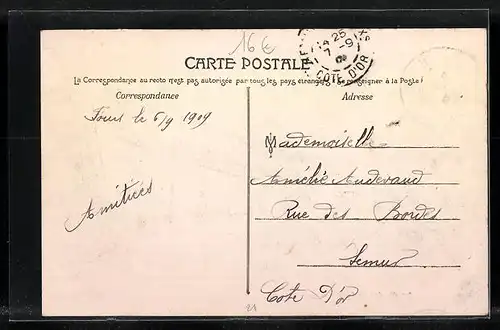 16 €
CARTE POSTALE
14 25
7 -9
COTE D'OR
La Correspondance au recto n'est pas autorisée par tous les pays étrangers. Se renseigner à la Poste!
Correspondance
Adresse
Fours le 6/9 1909
Amitiés
Mademoiselle
Amélie Auderaud
Rue des Bordes
Semur
Cote D'or